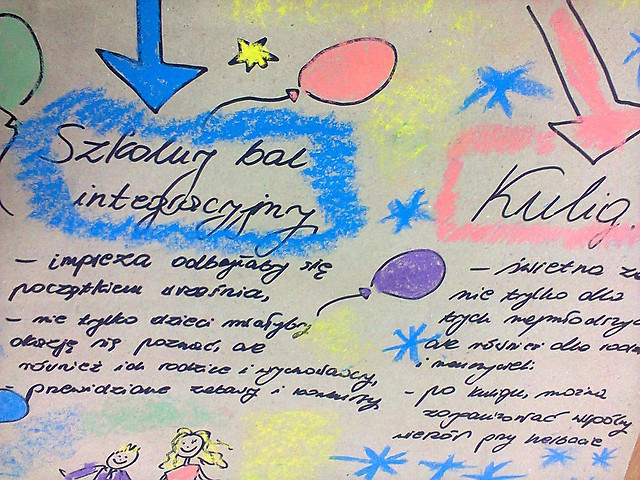 Szkolny bal
integracyjny
- impreza odbyłaby się
początkiem września,
- nie tylko dzieci miałyby
okazję się poznać, ale
również ich rodzice i wychowawcy,
- przewidziane zabawy i konkursy
Kulig.
- świetna za
nie tylko dla
tych najmłodszyc
ale również dla rodzi
i nauczycieli
- po kuligu, można
zorganizować wspólny
wieczór przy herbacie